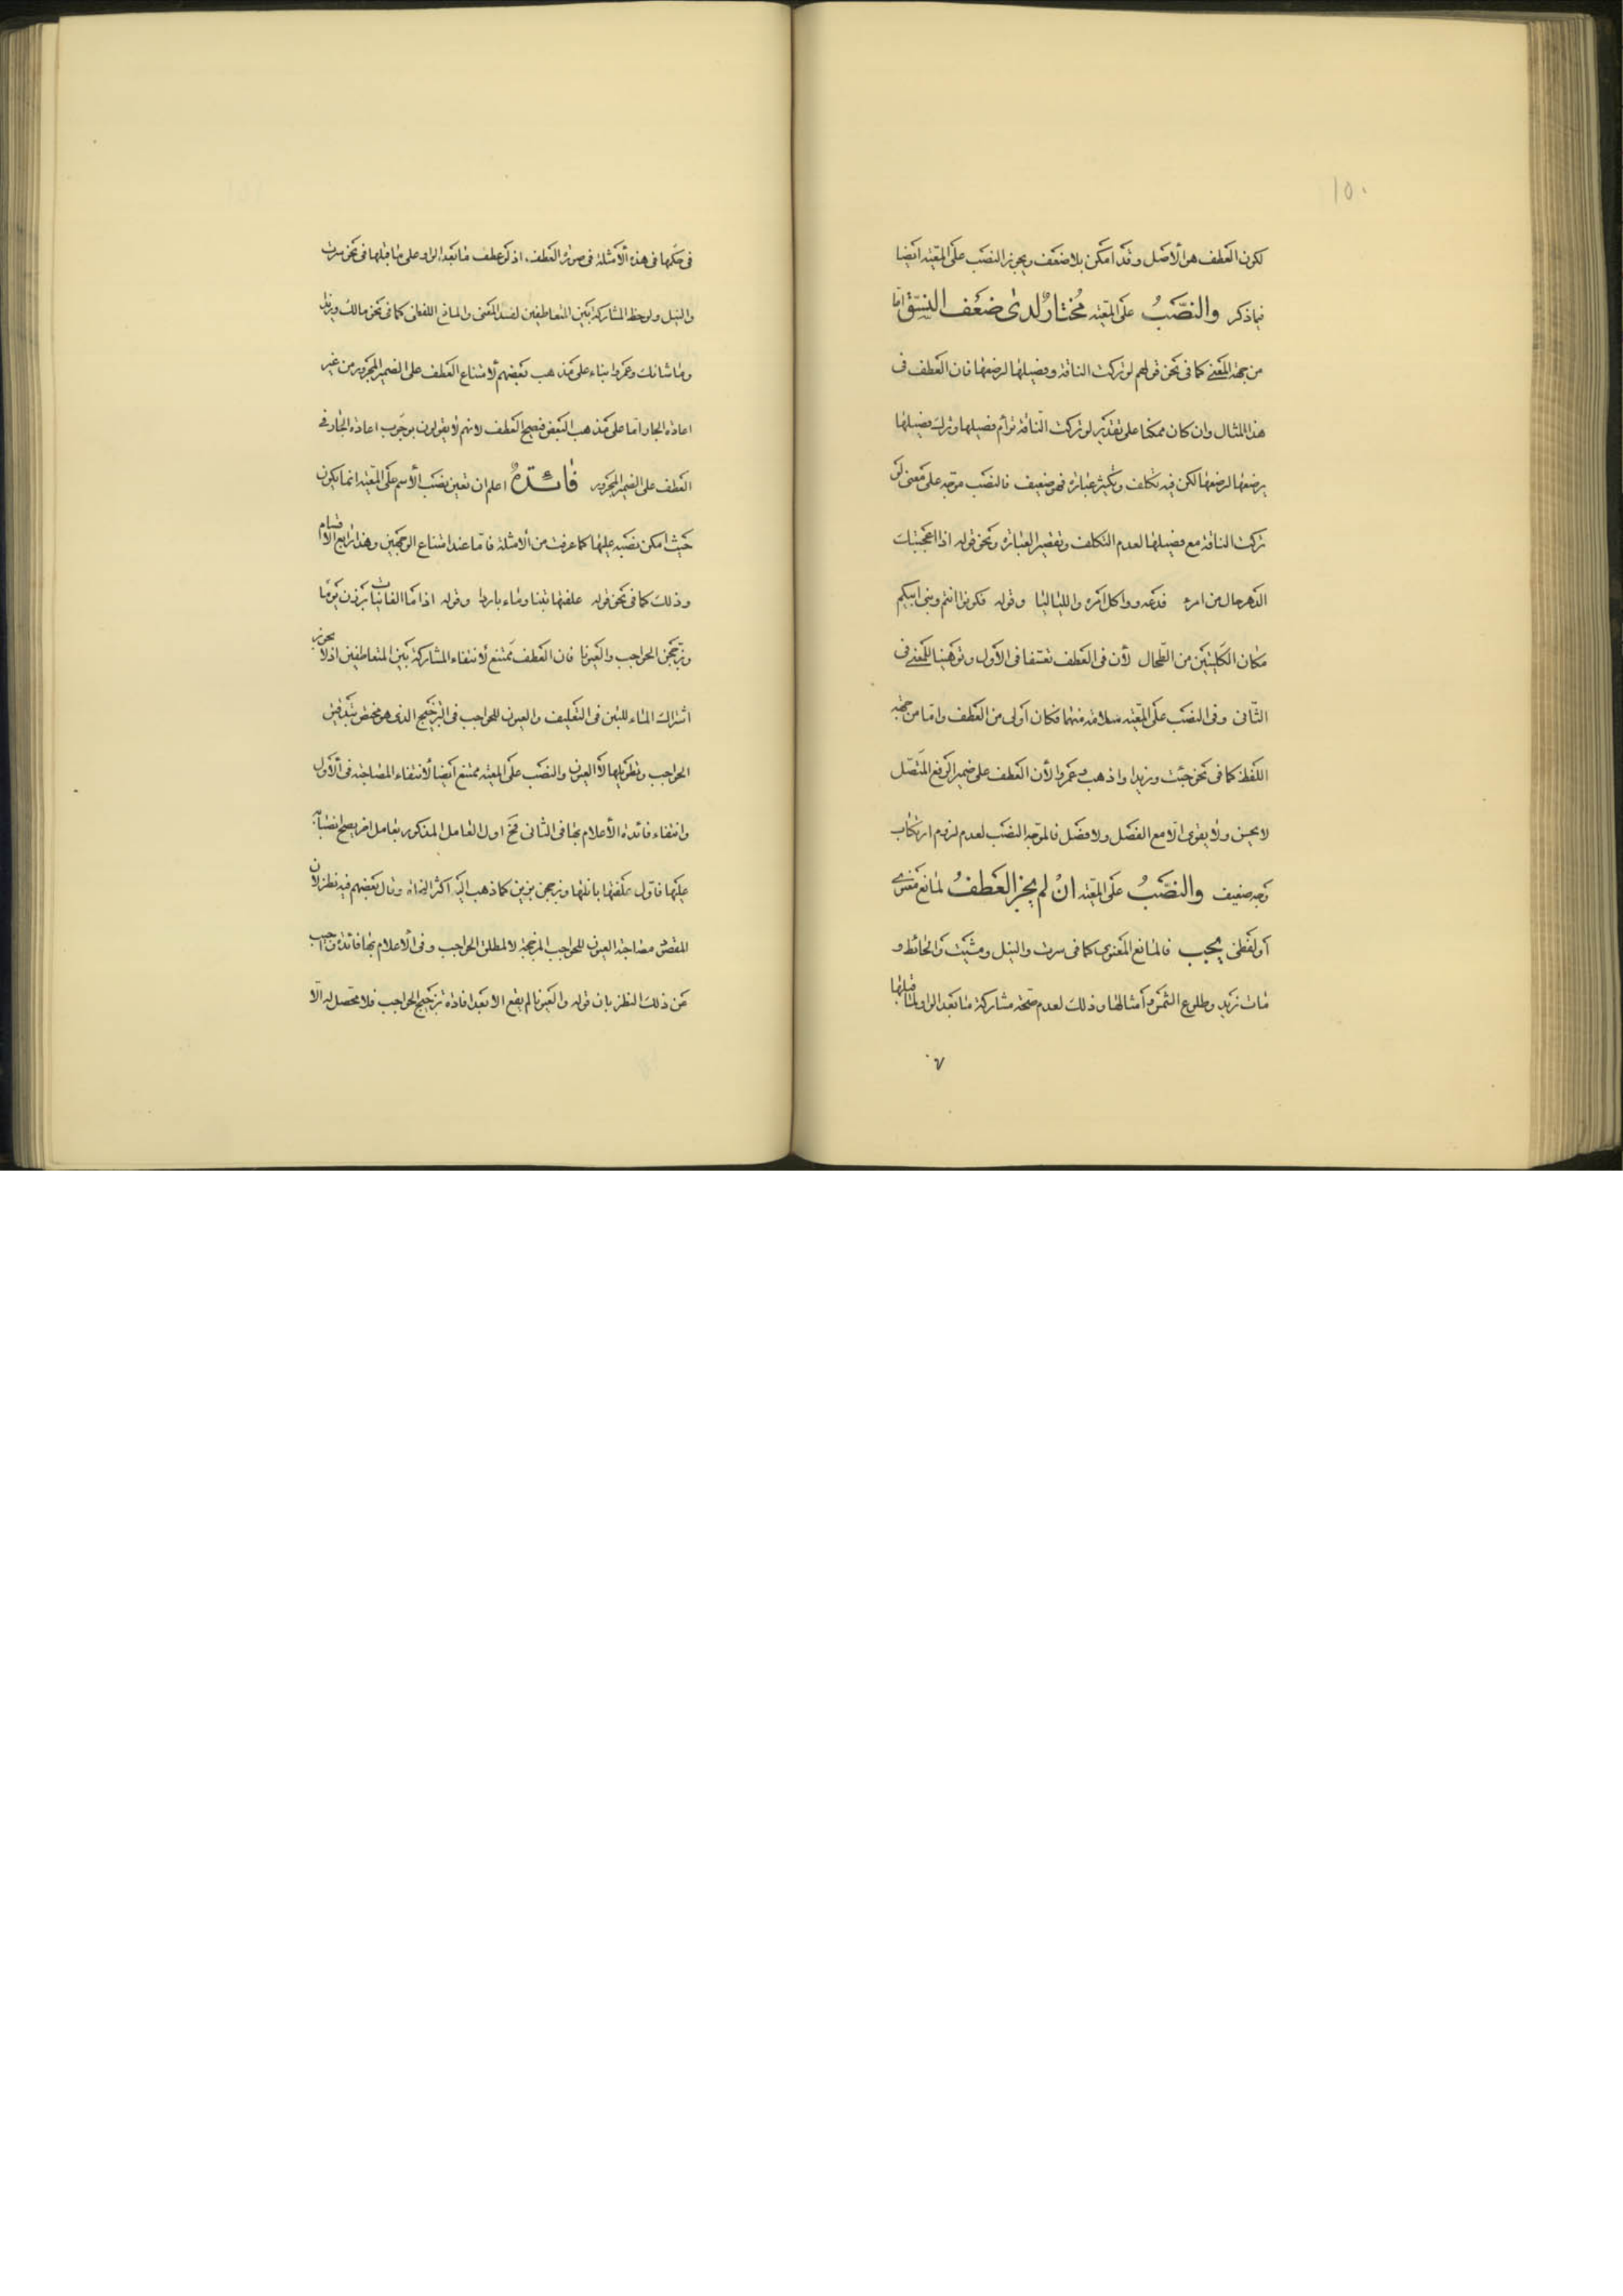 ١٥٠
لكون العطف هو الأصل وقد امكن بلا ضعف ويجوز النصب على المعيّة ايضا
فيما ذكر والنصّبُ على المعيّة مُختارٌ لدى ضعف النسق امّا
من جهة المعنى كما فى نحو قولهم لو تركت الناقة وفصيلها لرضعها فان العطف فى
هذا المثال وان كان ممكنا على تقدير لو تركت النّاقة ترأم فصيلها وترك فصيلها
يرضعها لرضعها لكن فيه تكلف وتكثير عبارة فهو ضعيف فالنصب موجّه على معنى لو
تركت الناقة مع فصيلها لعدم التكلف وتقصير العبارة ونحو قوله اذا اعجبتك
الدهر حال من امرء فدعه وواكل امره واللياليا وقوله فكونوا انتم وبنى ابيكم
مكان الكليتين من الطحال لأن فى العطف تعسّفا فى الأول وتوهينا للمعنى فى
الثّانى وفى النصب على المعيّة سلامة منهما فكان أولى من العطف وامّا من جهة
اللفظ كما فى نحو جئت وزيدا واذهب وعمروا لأن العطف على ضمير الرفع المتّصل
لا يحسن ولا يقوى الّا مع الفصل ولا فصل فالموجّه النصب لعدم لزوم ارتكاب
وجه ضعيف والنصّبُ على المعيّة انْ لم يجز العَطفُ لمانع معنوى
أو لفظى يجب فالمانع المعنوى كما فى سرت والنيل ومشيت والحائط و
مات زيد وطلوع الشمس وأمثالها وذلك لعدم صحّة مشاركة ما بعد الواو لما قبلها
فى حكمها فى هذه الأمثلة فى صورة العطف، اذ لو عطف ما بعد الواو على ما قبلها فى نحو سرت
والنيل ولوحظ المشاركة بين المتعاطفين لفسد المعنى والمانع اللفظى كما فى نحو مالك وزيدا
وما شانك وعمروا بناء على مذهب بعضهم لأمتناع العطف على الضمير المجرور من غير
اعادة الجار امّا على مذهب البعض فيصح العطف لانهم لا يقولون بوجوب اعادة الجار فى
العطف على الضمير المجرور فائدةٌ اعلم ان تعين نصب الأسم على المعيّة انما يكون
حيث امكن نصبه عليها كما عرفت من الأمثلة فامّا عند امتناع الوجهين وهذا رابع الأقسام
وذلك كما فى نحو قوله علفتها تبنا وماء باردا وقوله اذا ما الغانيات برزن يوما
وزجّجن الحواجب والعيونا فان العطف ممتنع لأنتفاء المشاركة بين المتعاطفين اذ لا يجوز
اشتراك الماء للتبن فى التعليف والعيون للحواجب فى التزجيج الذى هو مختص بتدقيق
الحواجب وتطويلها لا العيون والنصب على المعيّة ممتنع ايضا لأنتفاء المصاحبة فى الأول
وانتفاء فائدة الأعلام بها فى الثانى فح اول العامل المذكور بعامل اخر يصح انصبابه
عليها فاول علفتها بانلتها وزججن بزين كما ذهب اليه اكثر النحاة وقال بعضهم فيه نظر لان
المقصود مصاحبة العيون للحواجب المزججة لا لمطلق الحواجب وفى الأعلام بها فائدة واجيب
عن ذلك النظر بان قوله والعيونا لم يقع الا بعد افادة تزجيج الحواجب فلا محصل له الّا